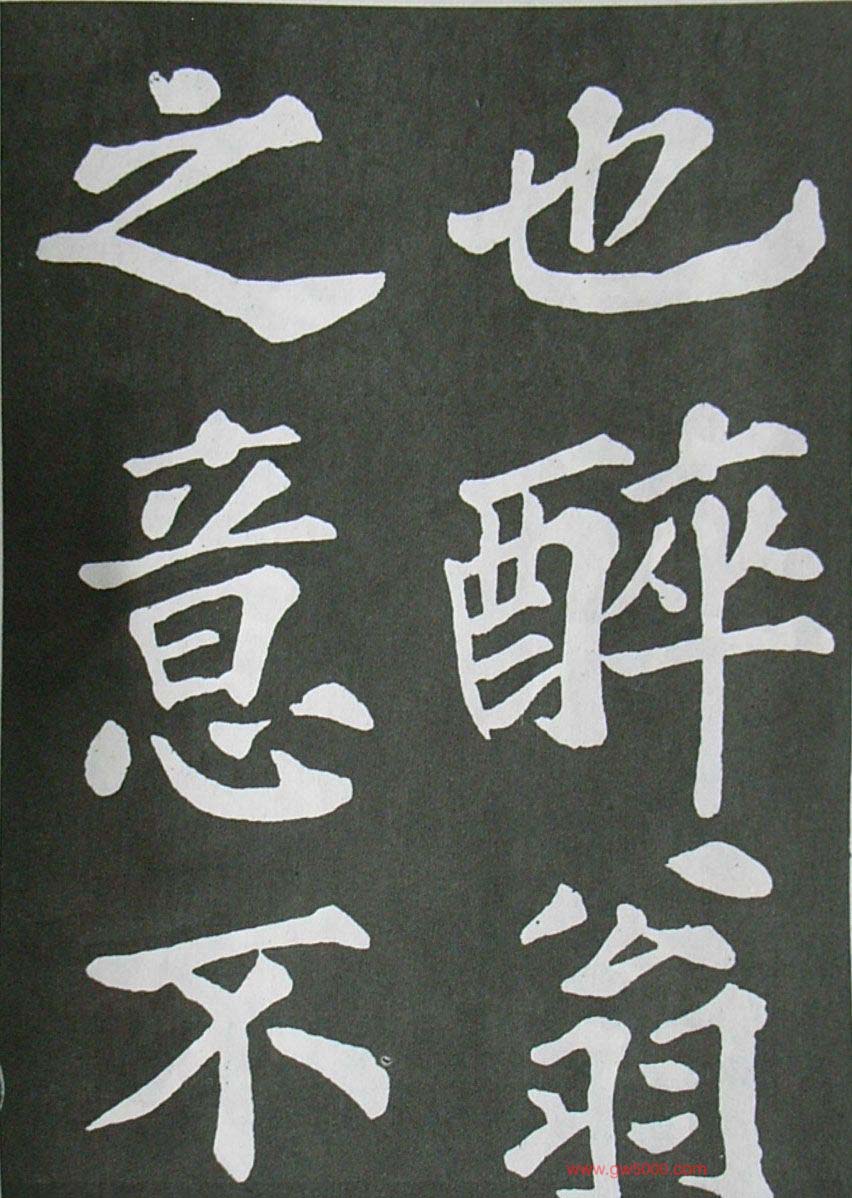 也醉翁
之意不
www.gw5000.com